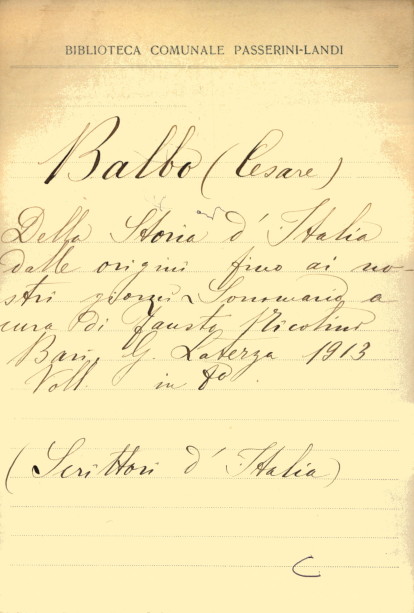 BIBLIOTECA COMUNALE PASSERINI-LANDI
Balbo (Cesare)
Della Storia d'Italia
dalle origini fino ai no-
stri giorni Sommario a
cura di Fausto Nicolini
Bari, G. Laterza 1913
Voll. in 8º.
(Scrittori d'Italia)